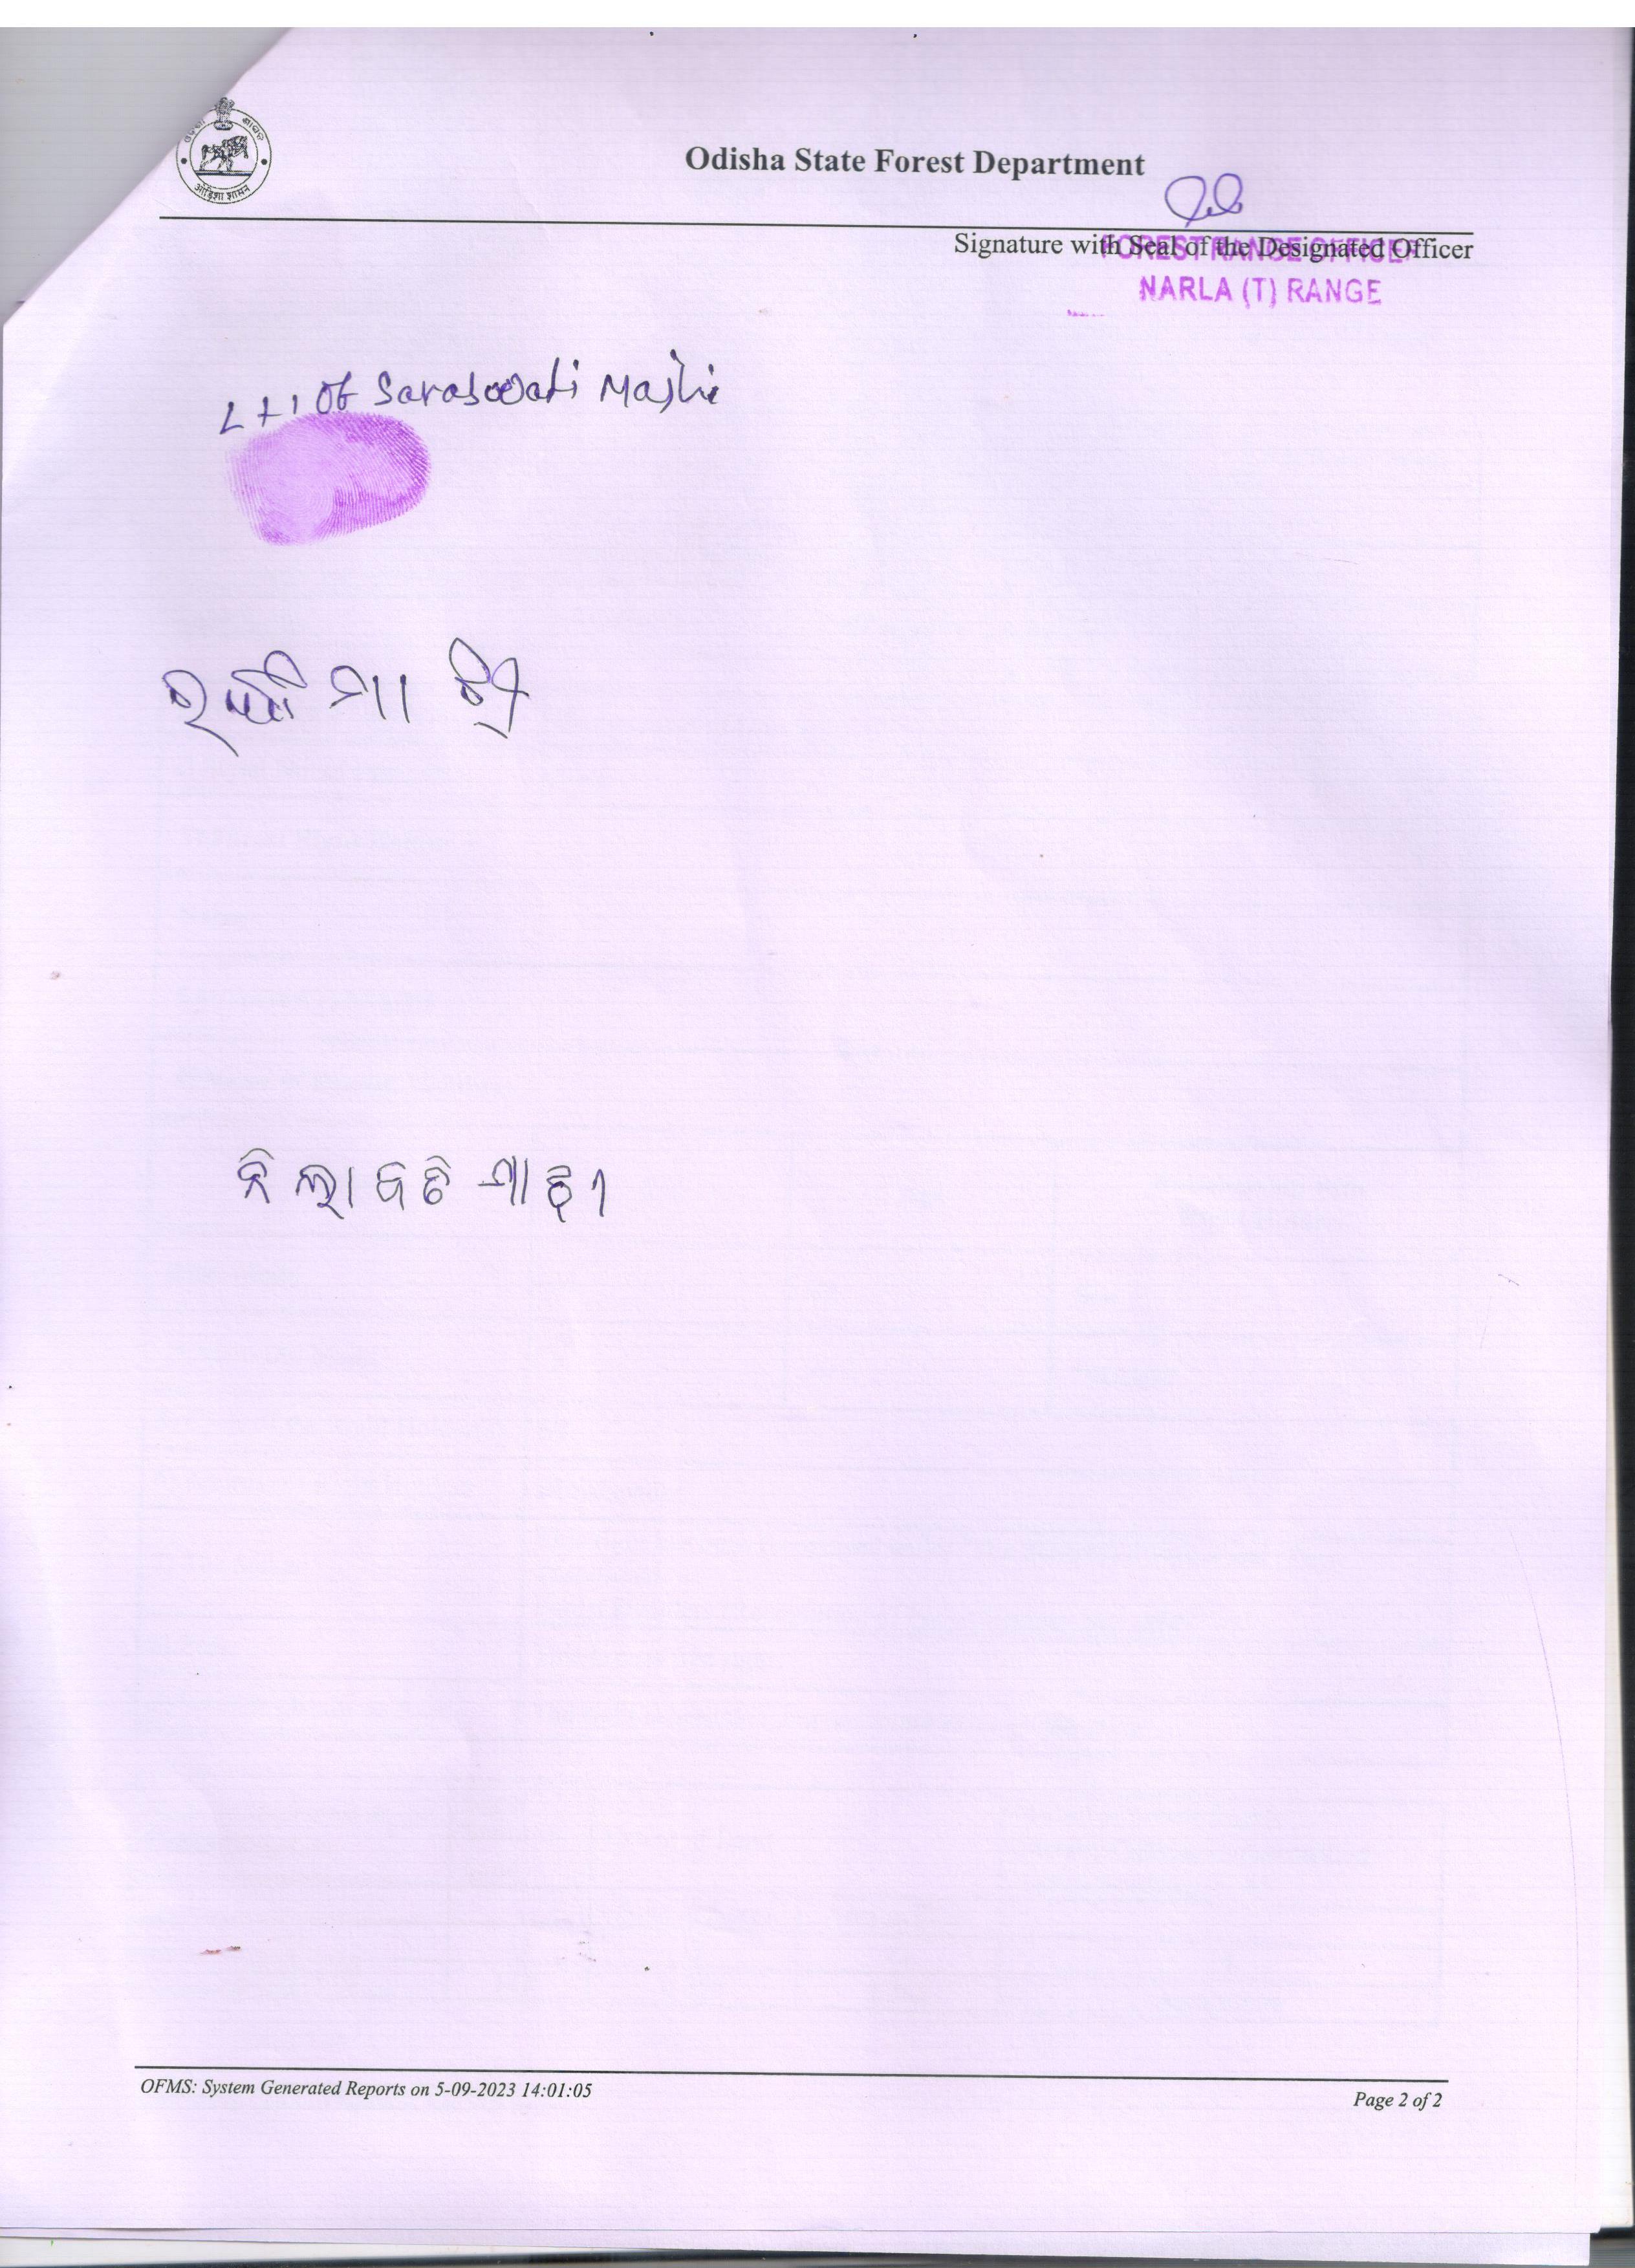 ओड़िशा शासन
Odisha State Forest Department
Signature with Seal of the Designated Officer
FOREST RANGE OFFICER
NARLA (T) RANGE
LTI Of Saraswati Majhi
ମା
ନିଲାବତି ମାଝୀ
OFMS: System Generated Reports on 5-09-2023 14:01:05
Page 2 of 2